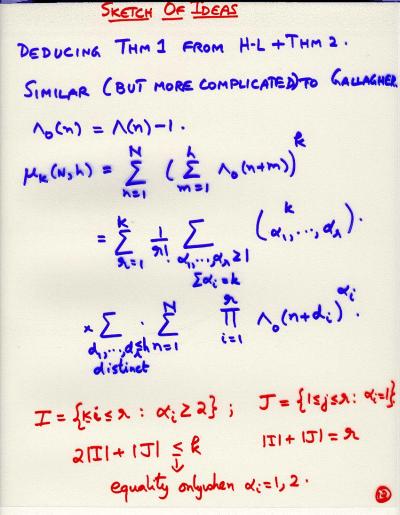 SKETCH OF IDEAS
DEDUCING THM 1 FROM H-L + THM 2.
SIMILAR (BUT MORE COMPLICATED) TO GALLAGHER
Λ₀(n) = Λ(n) - 1.
μₖ(N,h) = ∑_{n=1}^{N} ( ∑_{m=1}^{h} Λ₀(n+m) )^k
= ∑_{r=1}^{k} 1/r! ∑_{α₁,...,αᵣ ≥ 1, ∑αᵢ = k} ( k / α₁,...,αᵣ ).
× ∑_{d₁,...,dᵣ ≤ h distinct} . ∑_{n=1}^{N} ∏_{i=1}^{r} Λ₀(n+dᵢ)^{αᵢ}.
I = {1≤i≤r : αᵢ ≥ 2} ; J = {1≤j≤r : αᵢ=1}
2|I| + |J| ≤ k |I| + |J| = r
↓
equality only when αᵢ = 1, 2.